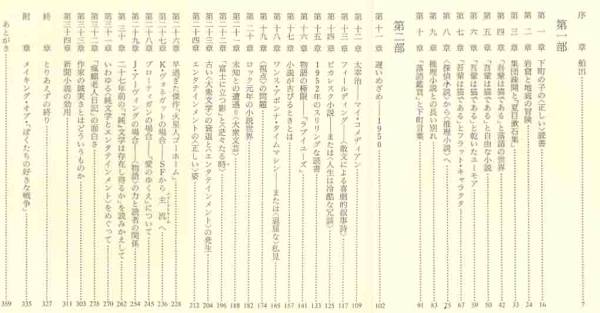 序章 頻出………7
第一部
第一章 下町の子の〈正しい〉読書………16
第二章 岩窟と地底の冒険………24
第三章 集団疎開と『夏目漱石集』………33
第四章 『吾輩は猫である』と落語の世界………42
第五章 『吾輩は猫である』と自由な小説………50
第六章 『吾輩は猫である』と乾いたユーモア………59
第七章 『吾輩は猫である』とフラット・キャラクター………67
第八章 〈探偵小説〉から〈推理小説〉へ………75
第九章 推理小説との長い別れ………83
第十章 『落語鑑賞』と下町言葉………91
第二部
第十一章 遅いめざめ――1950………102
第十二章 太宰治 マイ・コメディアン………109
第十三章 フィールディング――〈散文による喜劇的叙事詩〉………117
第十四章 ピカレスク小説――または〈人生は冷酷な冗談〉………125
第十五章 1952年のスリリングな読書………133
第十六章 物語の極限――『ラブイユーズ』………141
第十七章 小説が古びるときとは………157
第十八章 ワンス・アポン・ナ・タイムマシン――または〈過屈な〉私見………165
第十九章 〈視点〉の問題………174
第二十章 ロック元年の小説世界………182
第二十一章 未知との遭遇〈大衆文芸〉………188
第二十二章 『富士に立つ影』〈大茫々たる時〉………196
第二十三章 エンタテインメントの発生………204
第二十四章 古い〈大衆文学〉の衰退と〈エンタテインメント〉の〈正しい〉姿………212
第二十五章 早過ぎた傑作『火星人ゴーホーム』………228
第二十六章 K・ヴォネガットの場合――SFから主流へ………236
第二十七章 ブローティガンの場合――『愛のゆくえ』について………245
第二十八章 J・アーヴィングの場合――〈物語〉の力と読者の関係………254
第二十九章 二十七年前の『「純」文学は存在し得るか』を読みかえして………262
第三十章 いわゆる〈純文学とエンタテインメント〉をめぐって………270
第三十一章 『瘋癲老人日記』の面白さ………278
第三十二章 作家の誠実さとはどういうものか………303
第三十四章 新聞小説の効用………311
終章 とりあえずの終り………327
附章 メイキング・オブ・『ぼくたちの好きな戦争』………335
あとがき………359